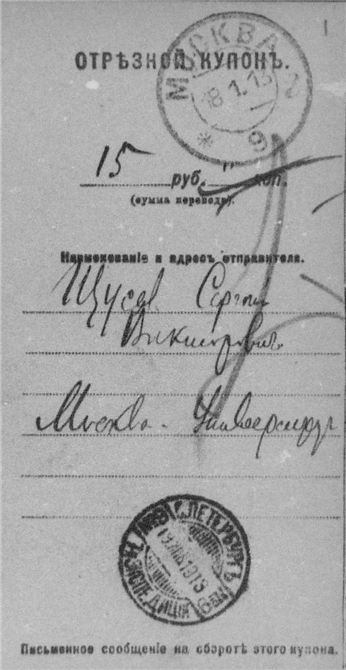 ОТРѢЗНОЙ КУПОНЪ.
МОСКВА
18.1.13
15 руб. " коп.
(сумма перевода).
Наименованіе и адресъ отправителя.
Щусев Сергѣй
Викторович
Москва. Университ
С.ПЕТЕРБУРГЪ
ЭКСПЕДИЦІЯ
Письменное сообщеніе на оборотѣ этого купона.